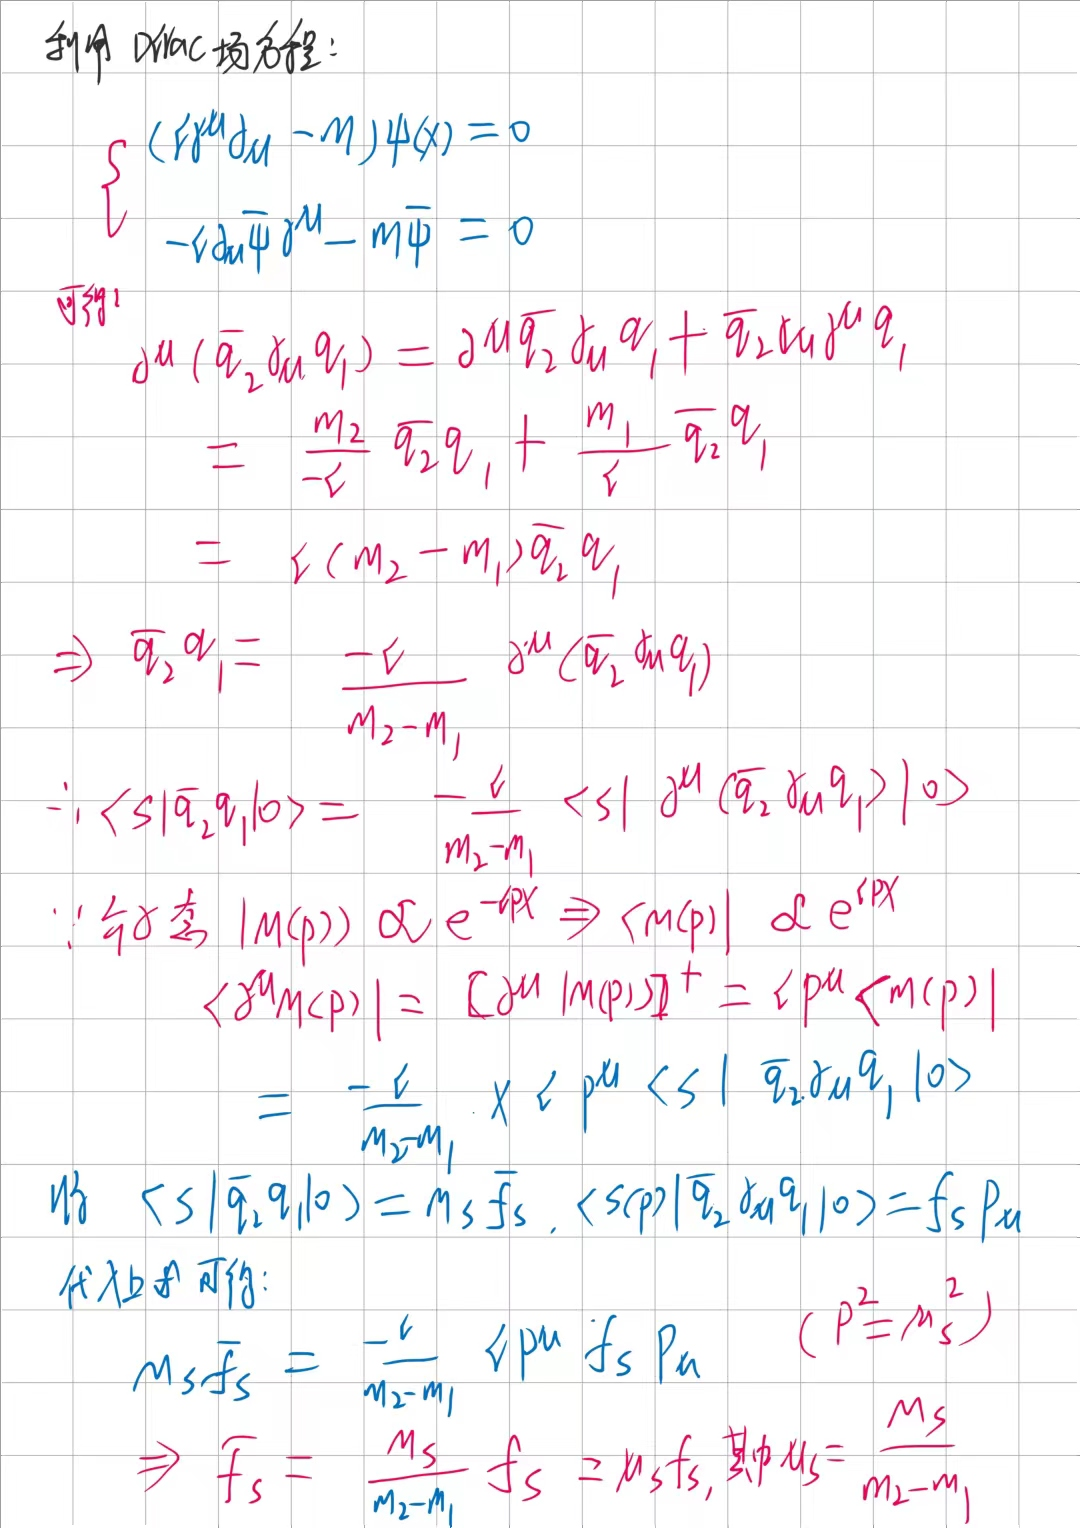 利用 Dirac 场方程:
(iγ^μ∂_μ - m)ψ(x) = 0
-i∂_μ ψ̄ γ^μ - m ψ̄ = 0
可得:
∂^μ(q̄_2 γ_μ q_1) = ∂^μ q̄_2 γ_μ q_1 + q̄_2 γ_μ ∂^μ q_1
= m_2/-i q̄_2 q_1 + m_1/i q̄_2 q_1
= i(m_2 - m_1) q̄_2 q_1
⇒ q̄_2 q_1 = -i/(m_2 - m_1) ∂^μ(q̄_2 γ_μ q_1)
∴ <S|q̄_2 q_1|0> = -i/(m_2 - m_1) <S| ∂^μ(q̄_2 γ_μ q_1)|0>
∵ |M(p)> ∝ e^{-ipx} ⇒ <M(p)| ∝ e^{ipx}
<∂^μ M(p)| = [∂^μ |M(p)>]^† = i p^μ <M(p)|
= -i/(m_2 - m_1) × i p^μ <S| q̄_2 γ_μ q_1 |0>
将 <S|q̄_2 q_1|0> = m_S f̄_S, <S(p)|q̄_2 γ_μ q_1|0> = f_S p_μ
代入上式可得:
m_S f̄_S = -i/(m_2 - m_1) i p^μ f_S p_μ (p^2 = m_S^2)
⇒ f̄_S = m_S/(m_2 - m_1) f_S = μ_S f_S, 其中 μ_S = m_S/(m_2 - m_1)